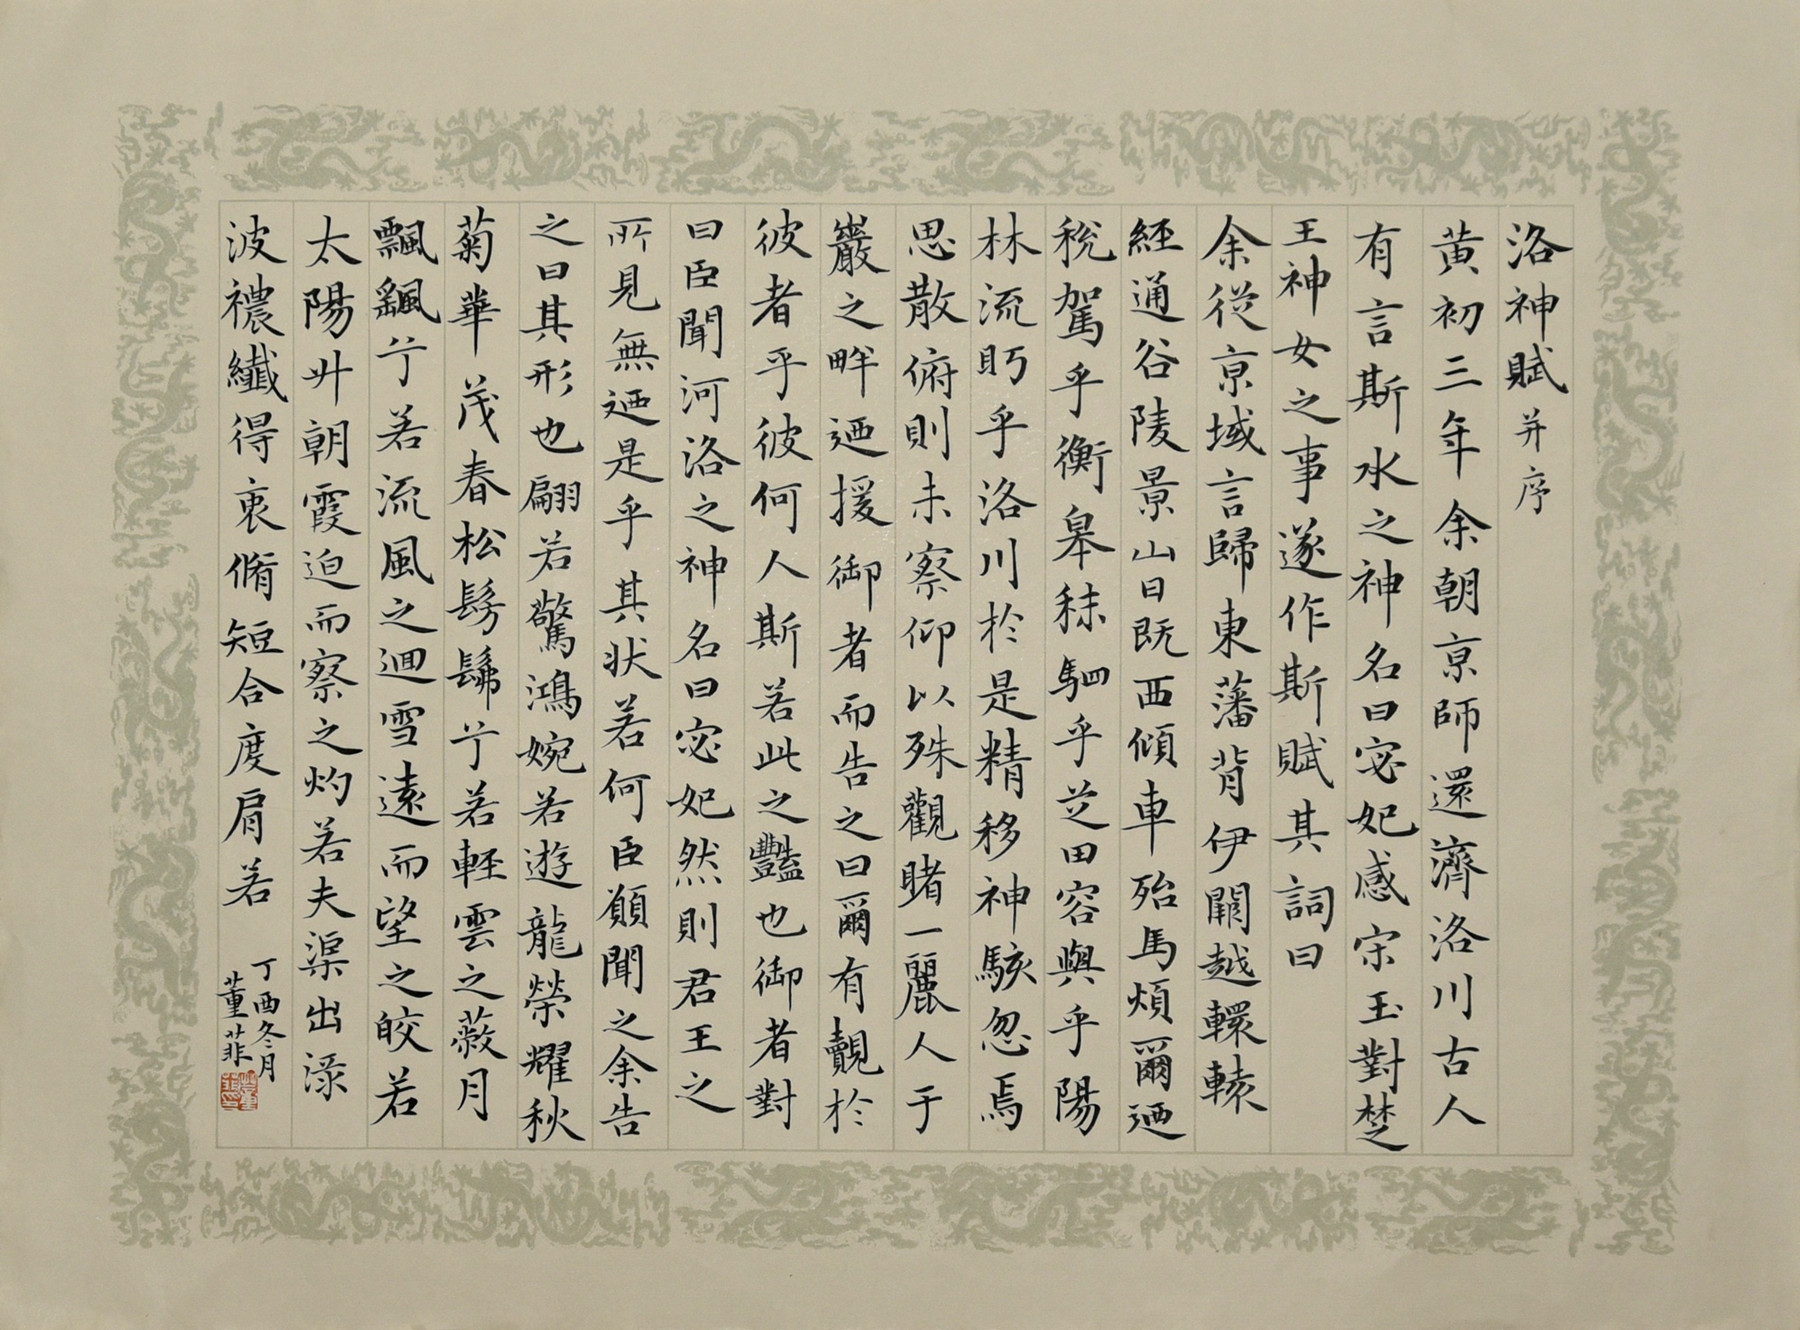 洛神賦并序
黃初三年余朝京師還濟洛川古人
有言斯水之神名曰宓妃感宋玉對楚
王神女之事遂作斯賦其詞曰
余從京域言歸東藩背伊闕越轘轅
經通谷陵景山日既西傾車殆馬煩爾迺
稅駕乎蘅皋秣駟乎芝田容與乎陽
林流眄乎洛川於是精移神駭忽焉
思散俯則未察仰以殊觀睹一麗人于
巖之畔迺援御者而告之曰爾有覿於
彼者乎彼何人斯若此之豔也御者對
曰臣聞河洛之神名曰宓妃然則君王之
所見無迺是乎其状若何臣願聞之余告
之曰其形也翩若驚鴻婉若遊龍榮耀秋
菊華茂春松髣髴兮若輕雲之蔽月
飄颻兮若流風之迴雪遠而望之皎若
太陽升朝霞迫而察之灼若夫渠出淥
波襛纖得衷脩短合度肩若
丁酉冬月
董菲